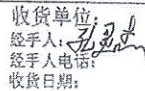 收货单位:
经手人:
经手人电话:
收货日期: